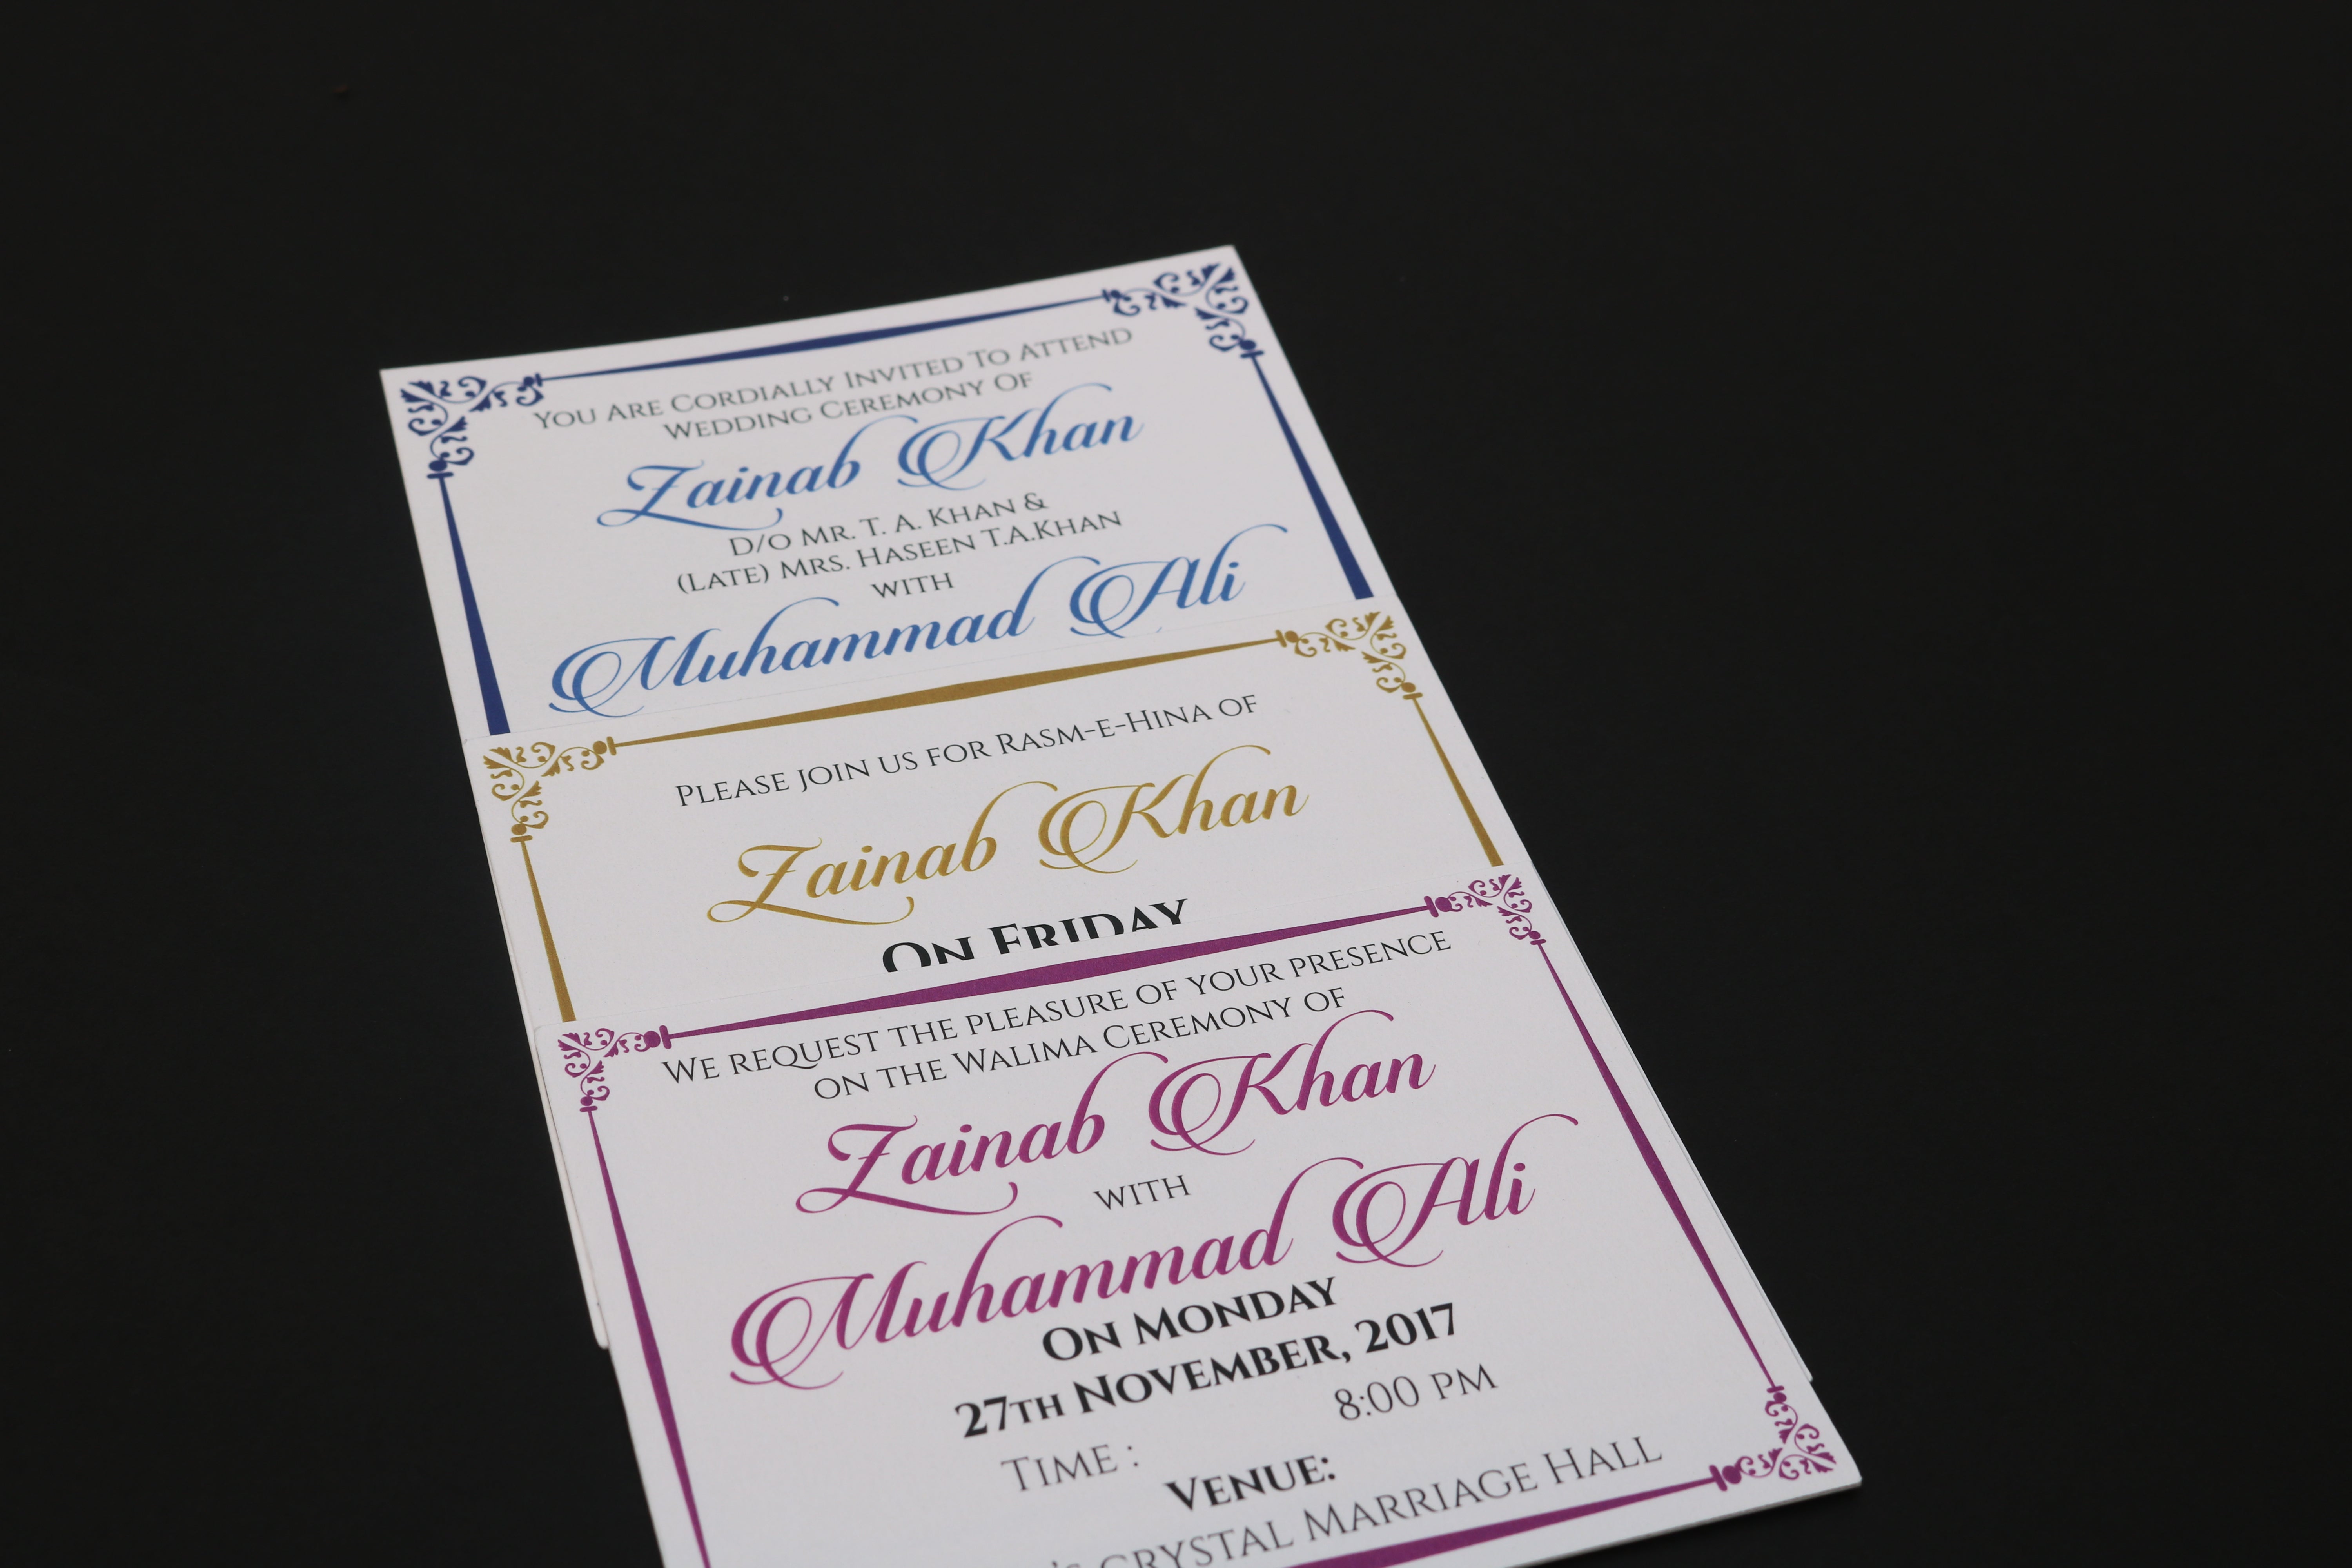 You Are Cordially Invited To Attend
Wedding Ceremony Of
Zainab Khan
D/O Mr. T. A. Khan &
(Late) Mrs. Haseen T.A.Khan
with
Muhammad Ali
Please join us for Rasm-e-Hina of
Zainab Khan
On Friday
We request the pleasure of your presence
on the Walima Ceremony of
Zainab Khan
with
Muhammad Ali
On Monday
27th November, 2017
Time : 8:00 pm
Venue:
Crystal Marriage Hall